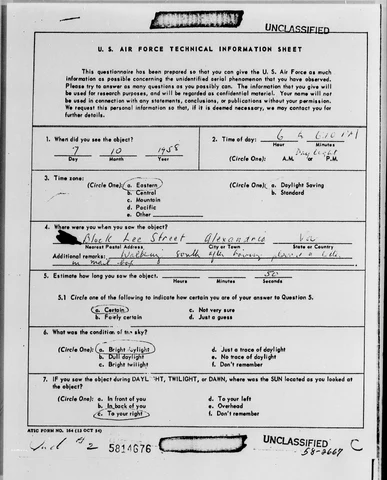 UNCLASSIFIED
U. S. AIR FORCE TECHNICAL INFORMATION SHEET
This questionnaire has been prepared so that you can give the U. S. Air Force as much
information as possible concerning the unidentified aerial phenomenon that you have observed.
Please try to answer as many questions as you possibly can. The information that you give will
be used for research purposes, and will be regarded as confidential material. Your name will not
be used in connection with any statements, conclusions, or publications without your permission.
We request this personal information so that, if it is deemed necessary, we may contact you for
further details.
1. When did you see the object?
7 10 1958
Day Month Year
2. Time of day: 6
Hour Minutes
(Circle One): A.M. or P.M.
3. Time zone:
(Circle One): a. Eastern
b. Central
c. Mountain
d. Pacific
e. Other
(Circle One): a. Daylight Saving
b. Standard
4. Where were you when you saw the object?
Block Lee Street Alexandria Va
Nearest Postal Address City or Town State or Country
Additional remarks: Walking south after having placed a letter
in mail box
5. Estimate how long you saw the object. 50
Hours Minutes Seconds
5.1 Circle one of the following to indicate how certain you are of your answer to Question 5.
a. Certain c. Not very sure
b. Fairly certain d. Just a guess
6. What was the condition of the sky?
(Circle One): a. Bright daylight d. Just a trace of daylight
b. Dull daylight e. No trace of daylight
c. Bright twilight f. Don't remember
7. IF you saw the object during DAYLIGHT, TWILIGHT, or DAWN, where was the SUN located as you looked at
the object?
(Circle One): a. In front of you d. To your left
b. In back of you e. Overhead
c. To your right f. Don't remember
ATIC FORM NO. 164 (13 OCT 54)
# 2 5814676 UNCLASSIFIED C
58-2667